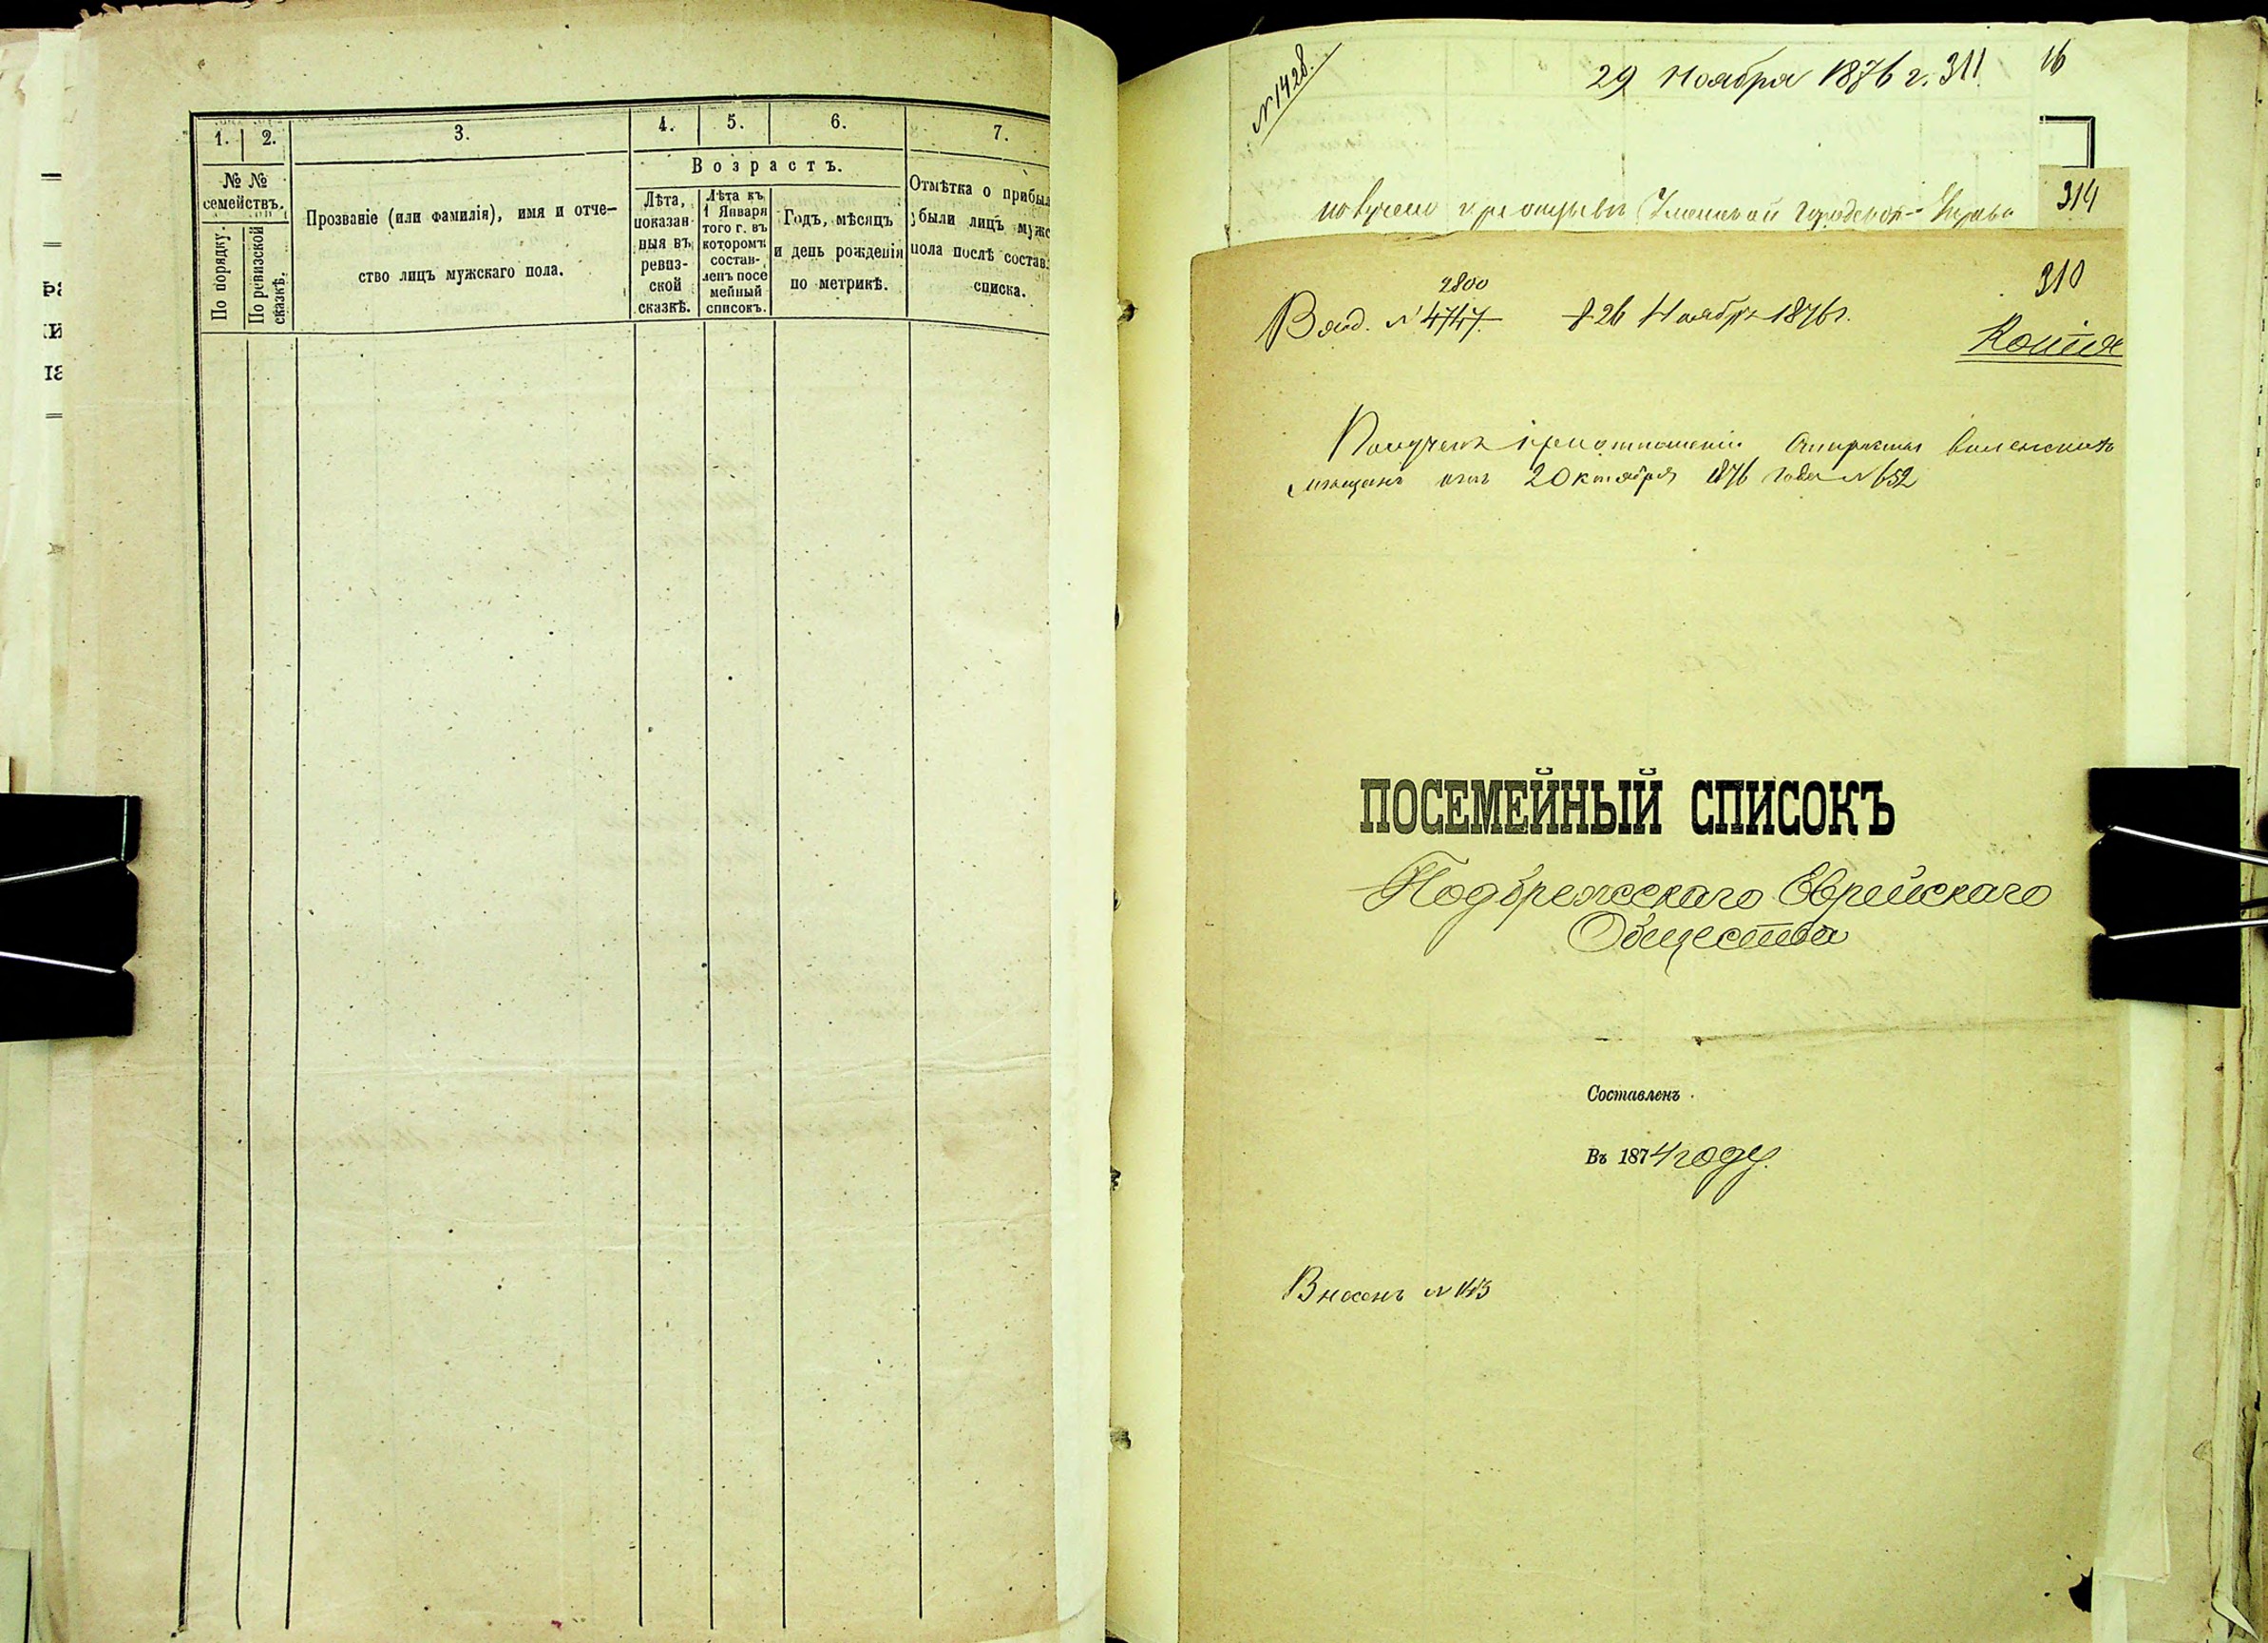 1. 2. 3. 4. 5. 6. 7.
Возрастъ.
№ №
семействъ.
По порядку.
По ревизской
сказкѣ.
Прозваніе (или фамилія), имя и отче-
ство лицъ мужскаго пола.
Лѣта,
показан-
ныя въ
ревиз-
ской
сказкѣ.
Лѣта къ
1 Января
того г. въ
которомъ
состав-
ленъ посе
мейный
списокъ.
Годъ, мѣсяцъ
и день рожденія
по метрикѣ.
Отмѣтка о прибыл
убыли лицъ мужс
пола послѣ состав.
списка.
№ 1428.
29 Ноября 1876 г. 311
16
получено при отзывѣ Городской Управы
314
310
2800
Вход. № 4747 26 Ноября 1876 г.
Копія
Полученъ при отношеніи Старосты Виленскихъ
мѣщанъ отъ 20 октября 1876 года № 652
ПОСЕМЕЙНЫЙ СПИСОКЪ
Подбрежскаго Еврейскаго
Общества
Составленъ
Въ 1874 году.
Внесенъ № 143